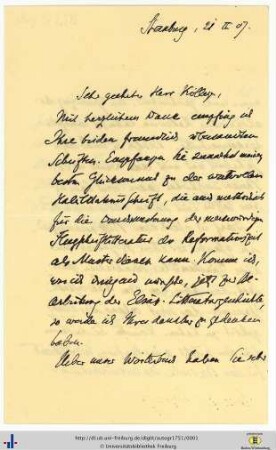 Strassburg, 21 II 07.
Sehr geehrter Herr College,
Mit herzlichem Dank empfing ich
Ihre beiden freundlich
Schriften. Empfangen Sie zunächst meinen
besten Glückwunsch zu der wertvollen
die auch methodisch
für die der merkwürdigen
Flugschriftenlitteratur der Reformationszeit
als Muster dienen kann. Komme ich,
was ich dringend wünsche, jetzt zur Be-
arbeitung der Elsäss. Litteraturgeschichte,
so werde ich Ihrer dankbar zu gedenken
haben.
Ueber unser Wörterbuch haben Sie sehr
http://dl.ub.uni-freiburg.de/diglit/autogr1751/0001
© Universitätsbibliothek Freiburg